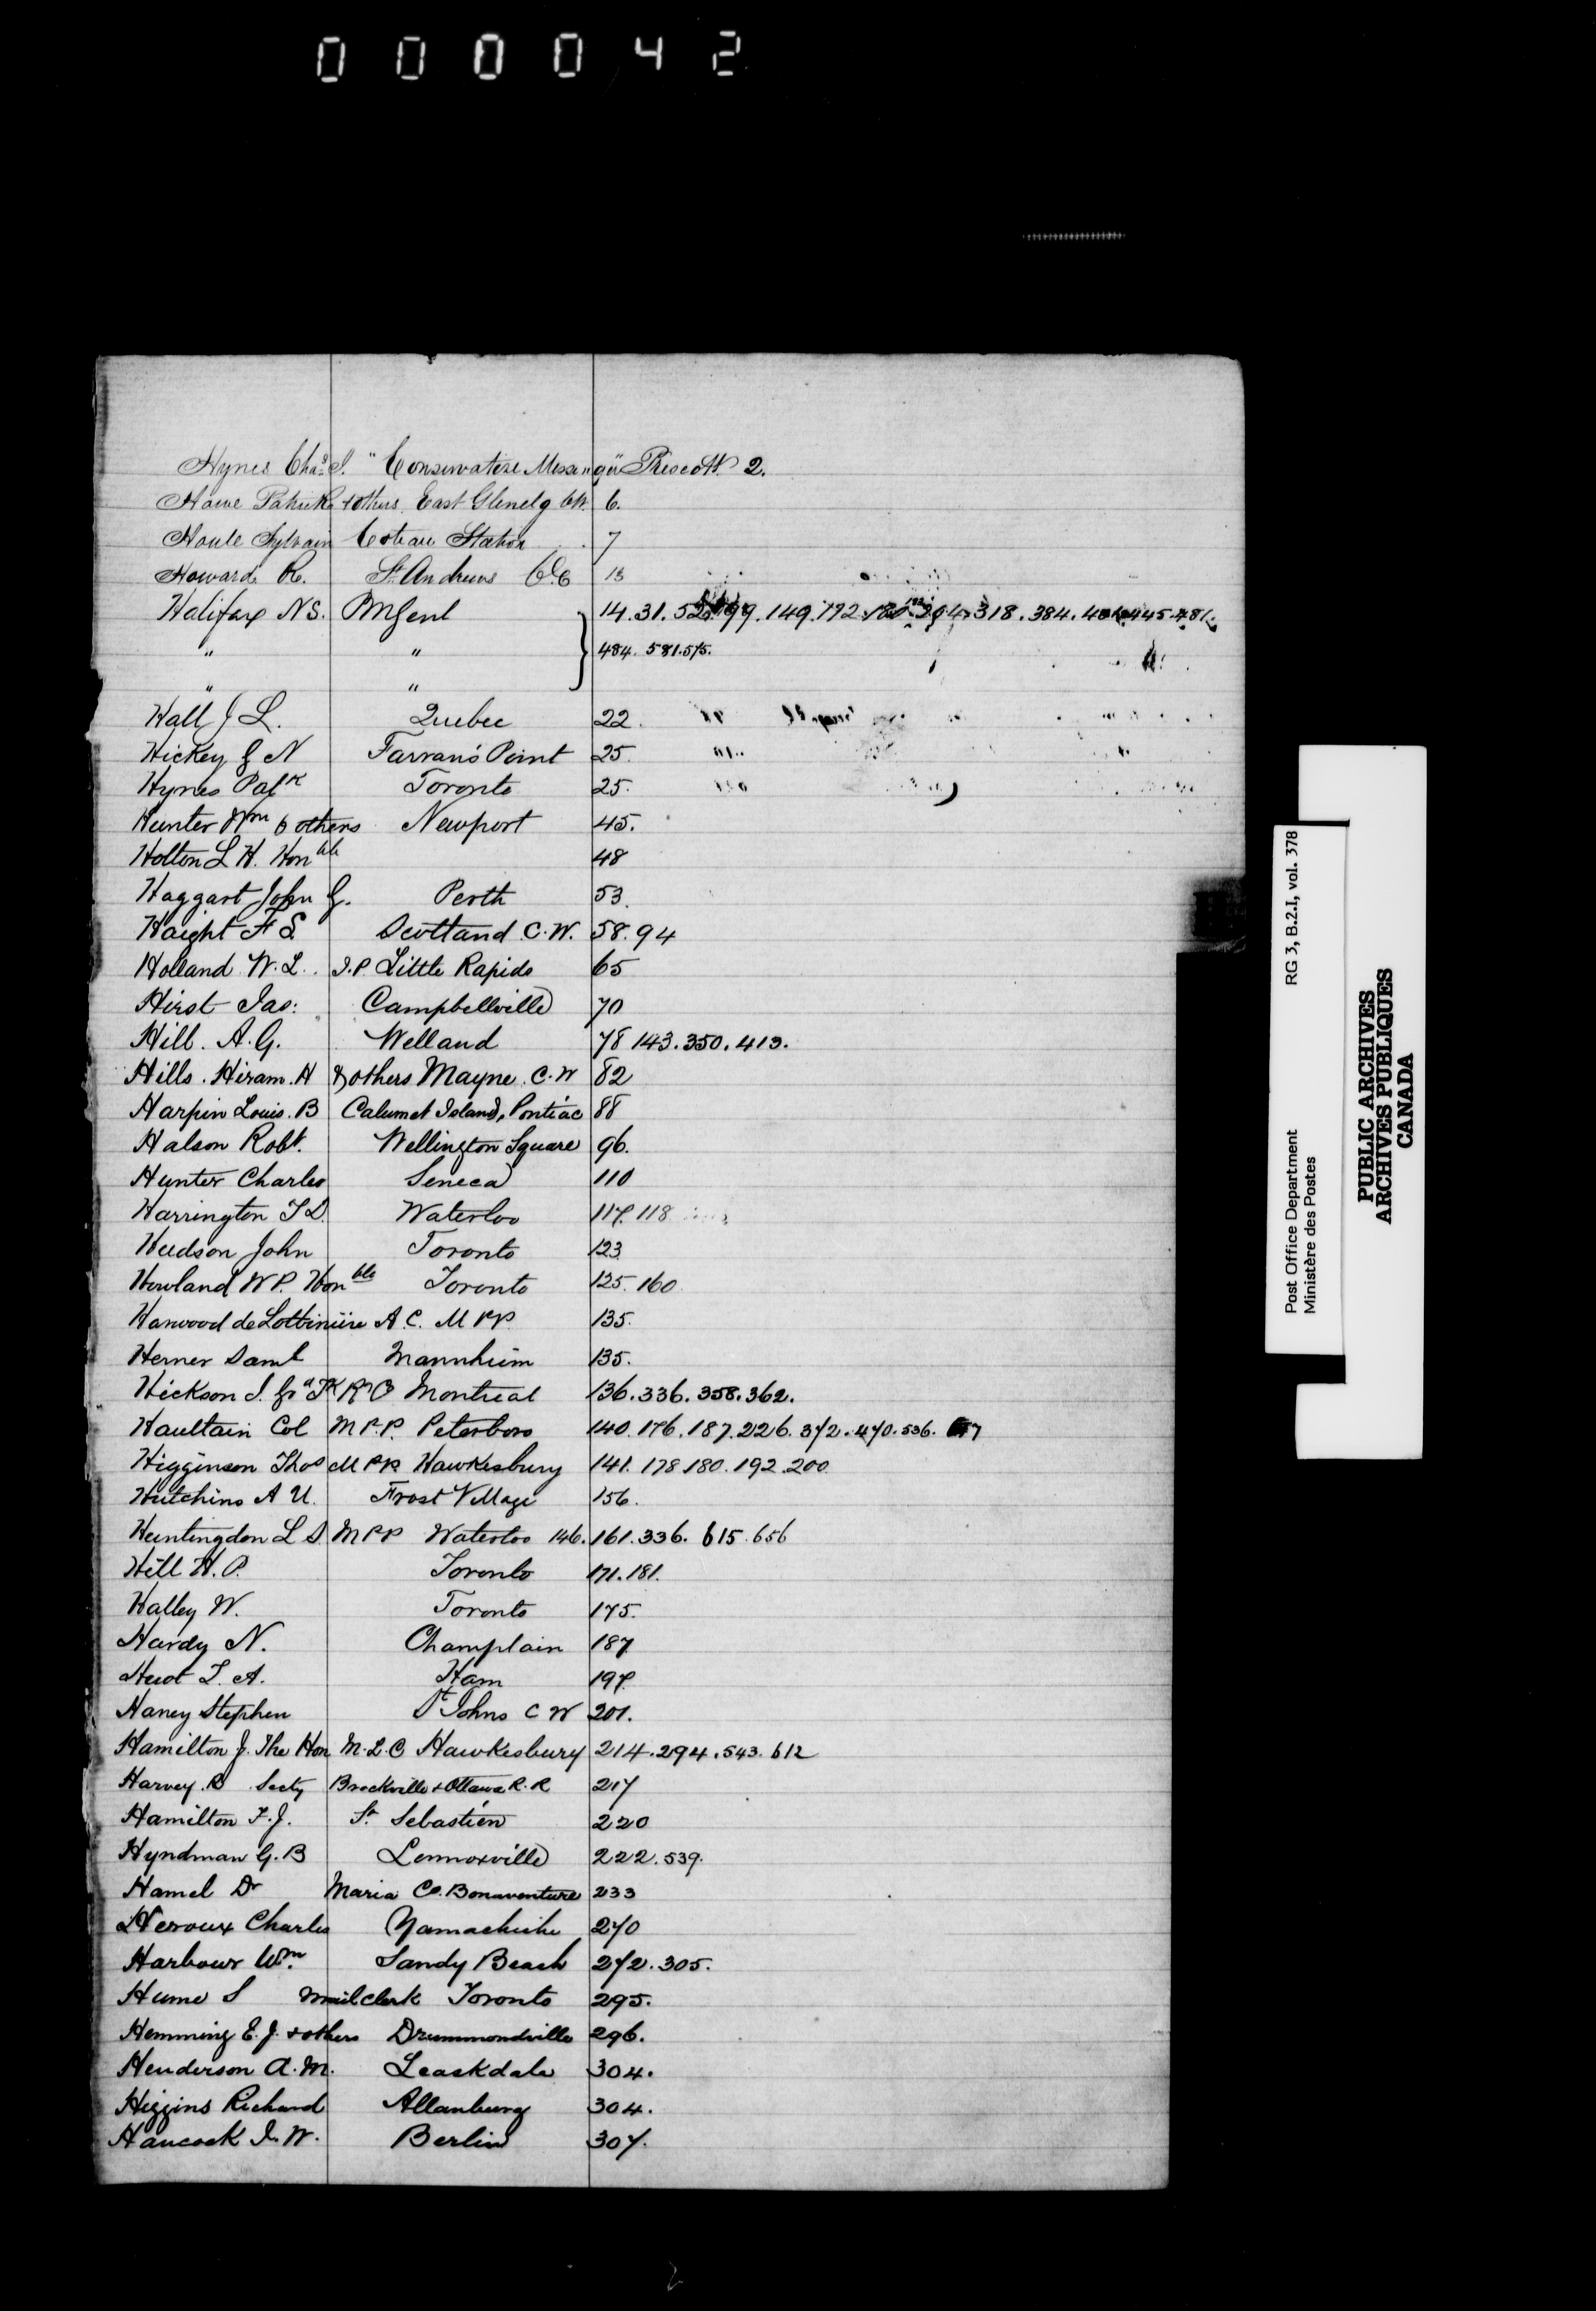 000042
Hynes Chas. S. "Conservative Messenger" Prescott 2.
Howe Patrick + others East Glenelg CW. 6.
Houle Sylvain Coteau Station 7
Howard R. St. Andrews C.E 13
Halifax N S. PMGenl 14.31.52.99.149.172.180.204.318.384.404.445.481.
" " 484. 581.575.
" "
Hall J L. Quebec 22.
Hickey G N Farran's Point 25.
Hynes Patk Toronto 25.
Hunter Wm & others Newport 45.
Holton L H. Honble 48
Haggart John G. Perth 53.
Haight H S Scotland C.W. 58.94
Holland W.L. I.P. Little Rapids 65
Hirst Jas: Campbellville 70
Hill. A.G. Welland 78 143.350.413.
Hills. Hiram. H & others Mayne. C.W 82
Harpin Louis. B Calumet Island, Pontiac 88
Halson Robt. Wellington Square 96.
Hunter Charles Seneca 110
Harrington T D. Waterloo 117.118
Hudson John Toronto 123
Howland W P. Honble Toronto 125.160
Harwood de Lotbinière A.C. M PP. 135.
Herner Saml Mannheim 135.
Hickson J. Gd Tk R Co Montreal 136.336.358.362.
Haultain Col M P.P. Peterboro 140.176.187.226.372.470.536.
Higginson Thos M PP. Hawkesbury 141.178.180.192.200.
Hutchins A U. Frost Village 156.
Huntingdon L S. M PP Waterloo 146.161.336.615.656
Hill H.P. Toronto 171.181.
Halley W. Toronto 175.
Hardy N. Champlain 187
Huot L. A. Ham 197.
Haney Stephen St Johns C W 201.
Hamilton J. The Hon M.L.C Hawkesbury 214.294.543.612
Harvey R Secty Brockville & Ottawa R.R 217
Hamilton F.J. St. Sebastien 220
Hyndman G.B Lennoxville 222.539.
Hamel Dr Maria Co. Bonaventure 233
L'Heroux Charles Yamachiche 270
Harbour Wm. Sandy Beach 272.305.
Hume S mail clerk Toronto 295.
Hemming E.J. & others Drummondville 296.
Henderson A.M. Leaskdale 304.
Higgins Richard Allanburg 304.
Hancock I.W. Berlin 307.
Post Office Department RG 3, B.2.I, vol. 378
Ministère des Postes
PUBLIC ARCHIVES
ARCHIVES PUBLIQUES
CANADA